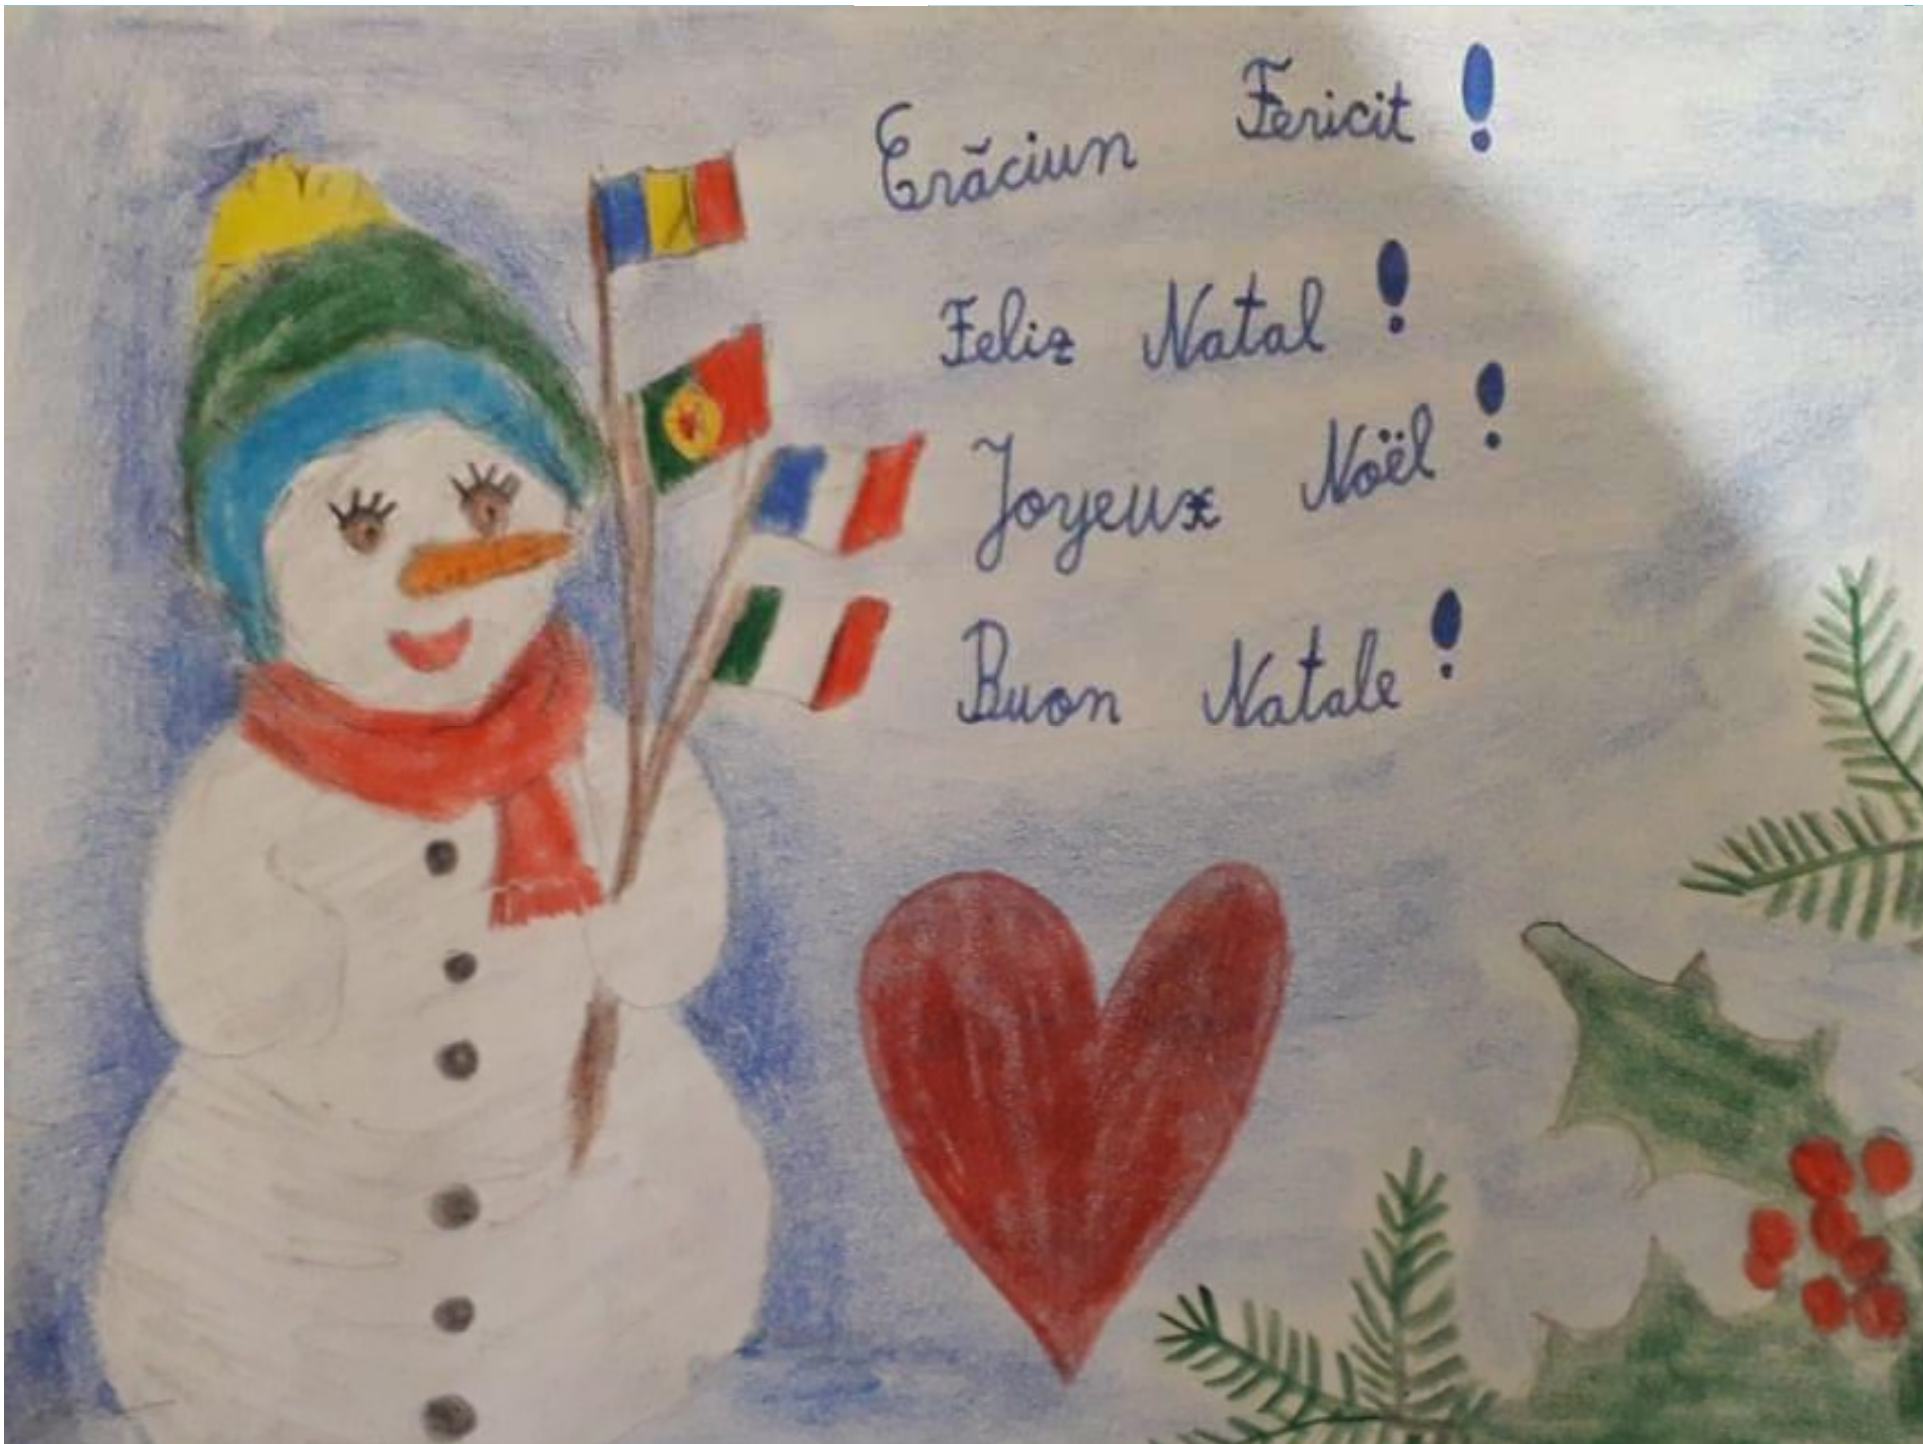 Crăciun Fericit !
Feliz Natal !
Joyeux Noël !
Buon Natale !